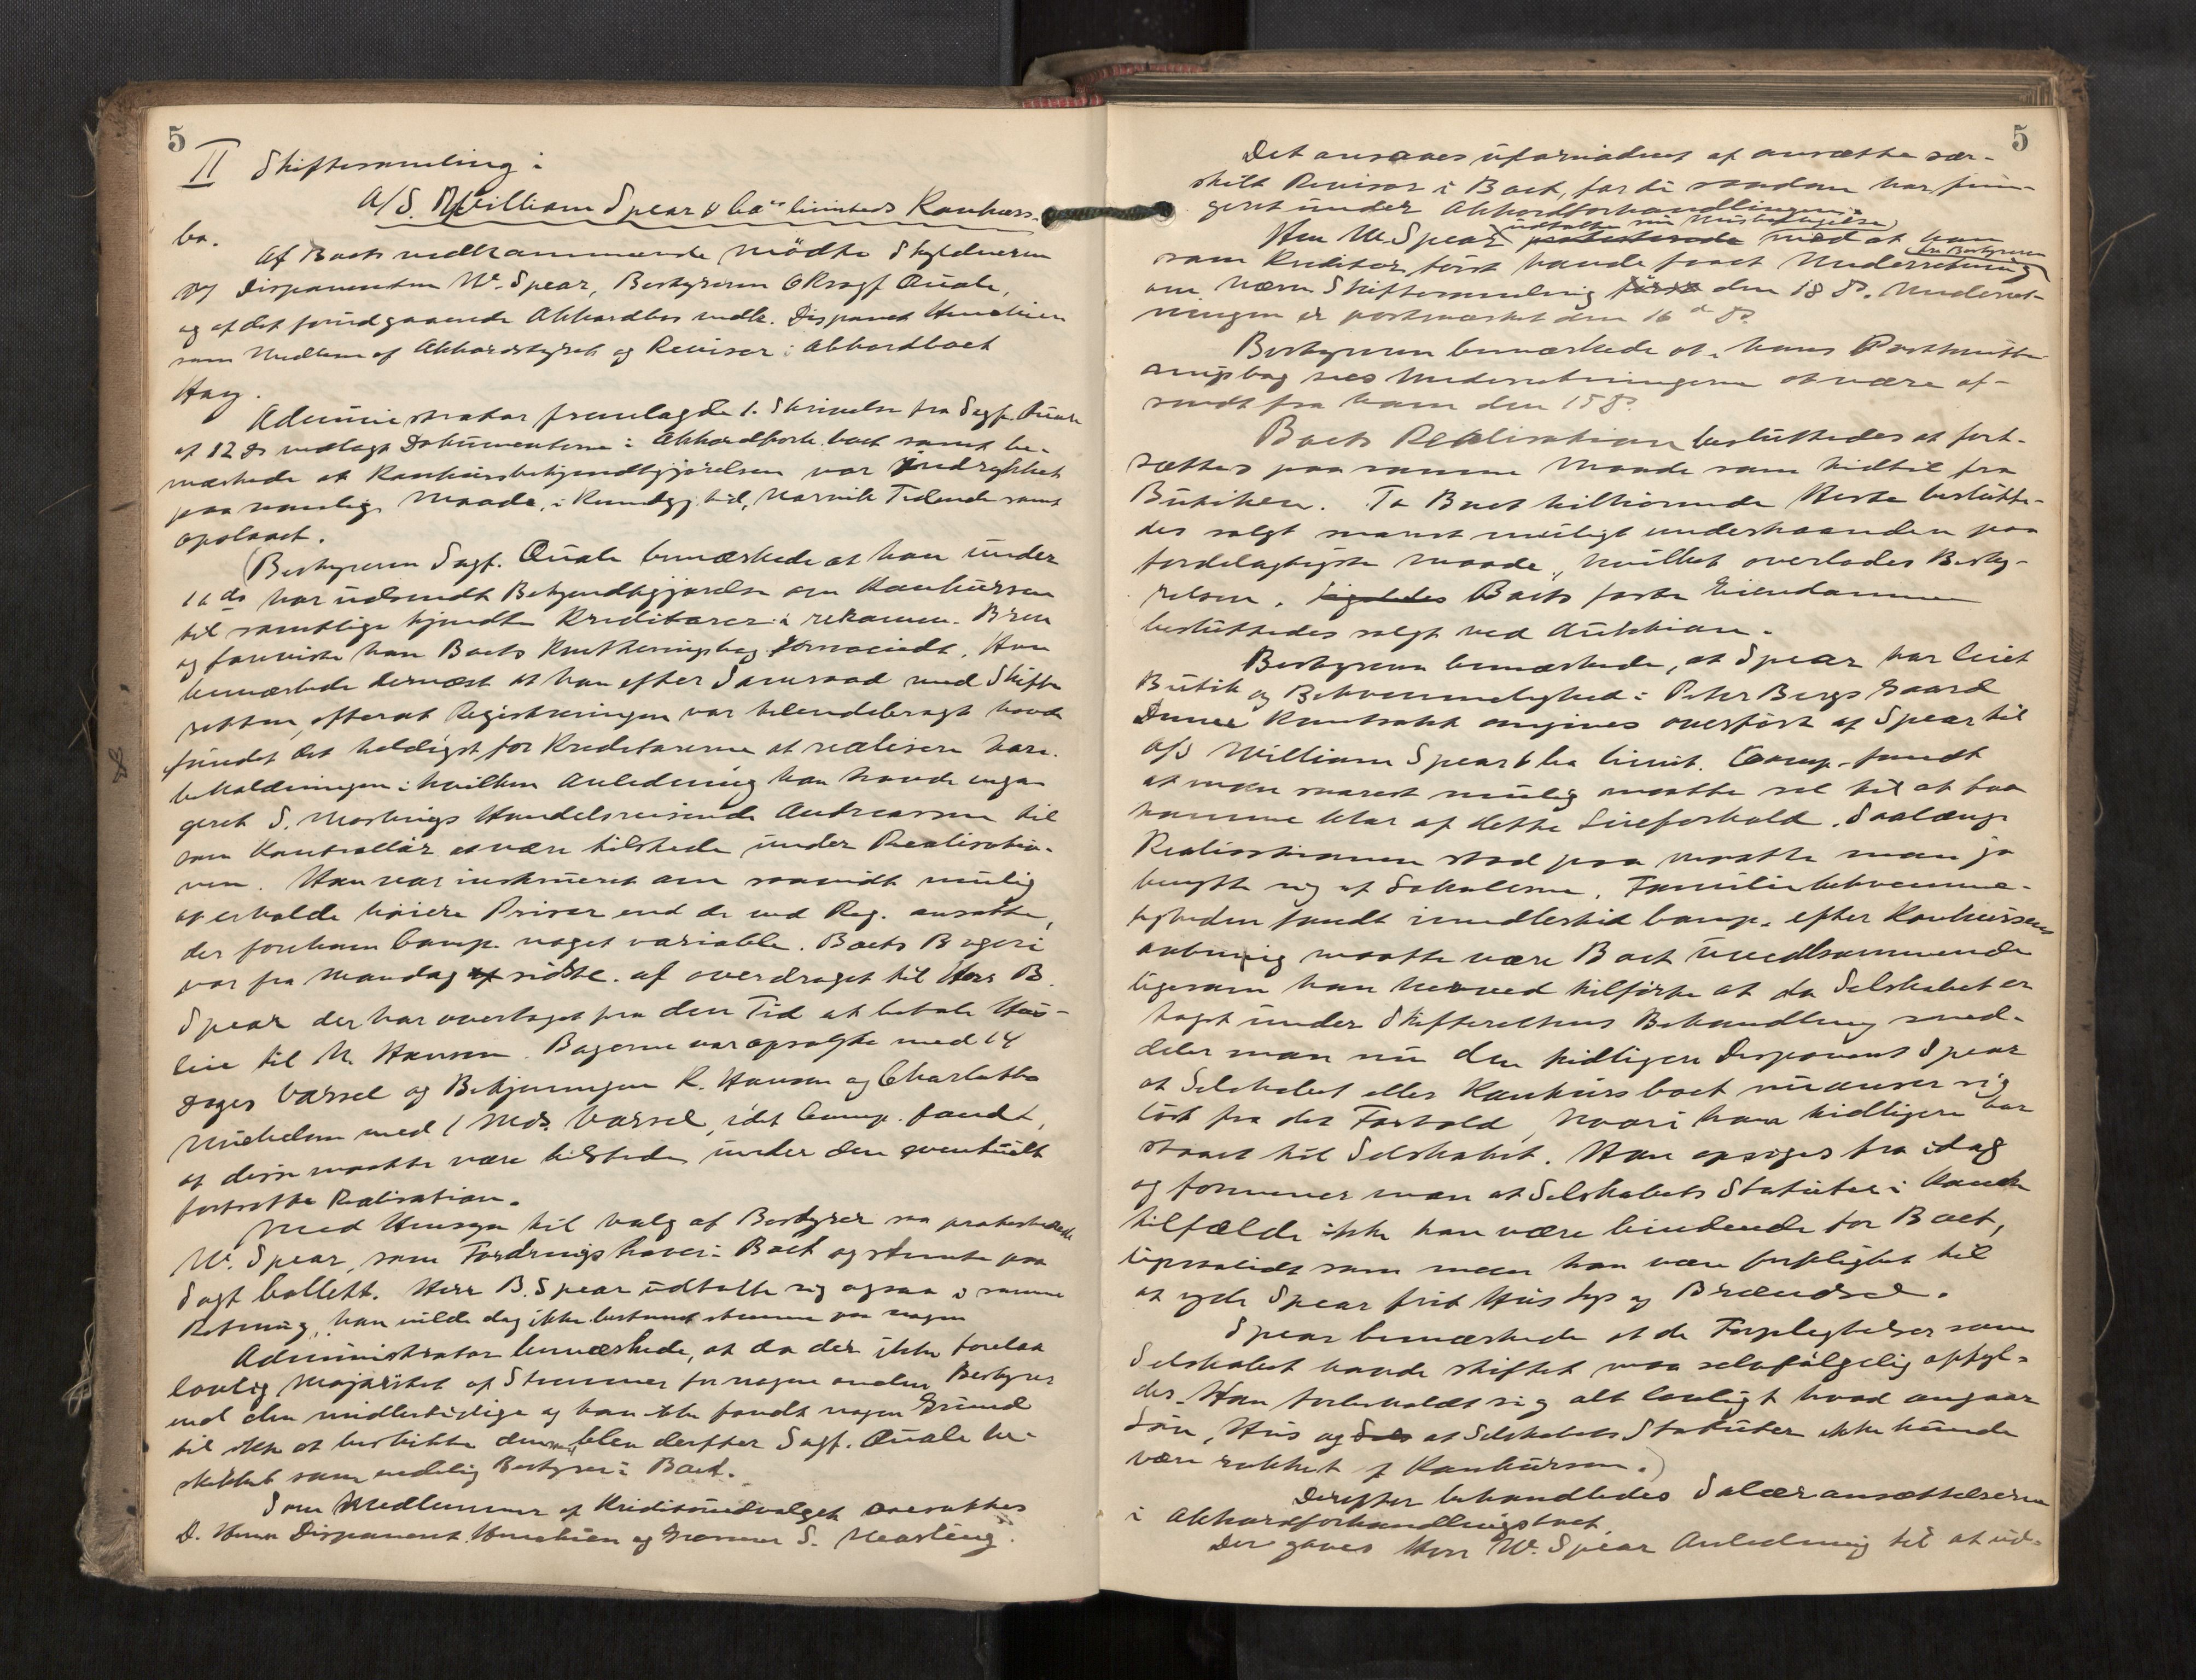 5
II Skiftesamling i
A/S. William Spear & Co's limiteds Konkurs-
bo.
Af Boets vedkommende mödte Skyldneren
ved Disponenten W. Spear, Bestyreren Sagf Quale,
og af det forudgaaende Akkordbos vedk. Disponent Henrikien
som Medlem af Akkordstyret og Revisor i Akkordboet
Hay.
Administrator fremlagde 1. Skrivelse fra Sagf. Quale
af 12 ds vedlagt Dokumenterne i Akkordforh.boet samt be-
mærkede at Konkursbekjendtgjörelsen var indrykket
paa vanlig Maade, i Kundgj.tid, Narvik Tidende samt
opslaaet.
(Bestyreren Sagf. Quale bemærkede at han under
ds har udsendt Bekjendtgjörelse om Konkursen
til samtlige kjendte Kreditorer i rekomm. Breve
og foreviste han Boets Kvitteringsbog forsaavidt. Han
bemærkede dernæst at han efter Samraad med Skifte
retten, efterat Registreringen var tilendebragt havde
fundet det heldigst for Kreditorerne at realisere Vare-
beholdningen i hvilken Anledning han havde enga-
geret S. Mastings Handelsreisende Andreassen til
som Kontrollör at være tilstede under Realisatio-
nen. Han var instrueret om saavidt mulig
at erholde höiere Priser end de ved Reg. ansatte,
der forekom Comp. noget variable. Boets Bageri
var fra Mandag sidstl. af overdraget til Herr B.
Spear der har overtaget fra den Tid at betale Hus-
leie til N. Hansen. Bagerne var opsagte med 14
Dages Varsel og Betjeningen R. Hansen og Charlotte
Michelsen med 1 Mds. Varsel, idet Comp. fandt,
at disse maatte være tilstede under den eventuelt
fortsatte Realisation.
Med Hensyn til Valg af Bestyrer saa protesterede
W. Spear, som Fordringshaver i Boet og stemte paa
Sagf Collett. Herr B. Spear udtalte sig ogsaa i samme
Retning, han vilde dog ikke bestemt stemme paa nogen
Administrator bemærkede, at da der ikke forelaa
lovlig Majoritet af Stemmer for nogen anden Bestyrer
end den midlertidige og han ikke fandt nogen Grund
til ikke at beskikke denne, blev derfter Sagf. Quale be-
skikket som endelig Bestyrer i Boet.
Som Medlemmer af Kreditorudvalget ansattes
D. Herrer Disponent Henrikien og Grosserer S. Masting.
5
Det ansaaes ufornödent at ansætte sær-
skilt Revisor i Boet, fordi saadan har fun-
geret under Akkordforhandlingen.
udtalte sin Misbilligelse
Herr W. Spear protesterede med at han
fra Bestyreren
som Kreditor först havde faaet Underretning
om nærv. Skiftesamling först den 18 ds. Underret-
ningen er poststemplet den 16 ds.
Bestyreren bemærkede at i hans
sees Underretningerne at være af-
sendt fra ham den 15 ds.
Boets Realisation besluttedes at fort-
sættes paa samme Maade som hidtil fra
Butiken. To Boet tilhörende Heste beslutte-
des solgt snarest muligt underhaanden paa
fordelagtigste Maade, hvilket overlodes Besty-
relsen. Ligeledes Boets faste Eiendomme
besluttedes solgt ved Auktion.
Bestyreren bemærkede, at Spear har leiet
Butik og Bekvemmelighed i Peter Bergs Gaard
Denne Kontrakt angives overfört af Spear til
A/S William Spear & Co limit. Comp. fandt
at man snarest mulig maatte se til at faa
komme klar af dette Leieforhold. Saalænge
Realisationen stod paa maatte man jo
benytte sig af Lokalerne. Familiebekvemme-
ligheden fandt imidlertid Comp. efter Konkursens
aabning maatte være Boet uvedkommende
ligesom han herved tilförte at da Selskabet er
taget under Skifterettens Behandling med-
deler man nu den tidligere Disponent Spear
at Selskabet eller Konkursboet nu anser sig
löst fra det Forhold, hvori han tidligere har
staaet til Selskabet. Han opsiges fra idag
og formener man at Selskabets Statuter i
tilfælde ikke kan være bindende for Boet,
ligesaalidt som man kan være forpligtet til
at yde Spear frit Hus Lys og Brændsel.
Spear bemærkede at de Forpligtelser som
Selskabet havde stiftet maa selvfölgelig opfyl-
des. Han forbeholdt sig alt lovligt hvad angaar
Lön, Hus og at Selskabets Statuter ikke kunde
være rokket af Konkursen.)
Derefter behandledes Salæransættelserne
i Akkordforhandlingsboet.
Der gaves Herr W. Spear Anledning til at ud-